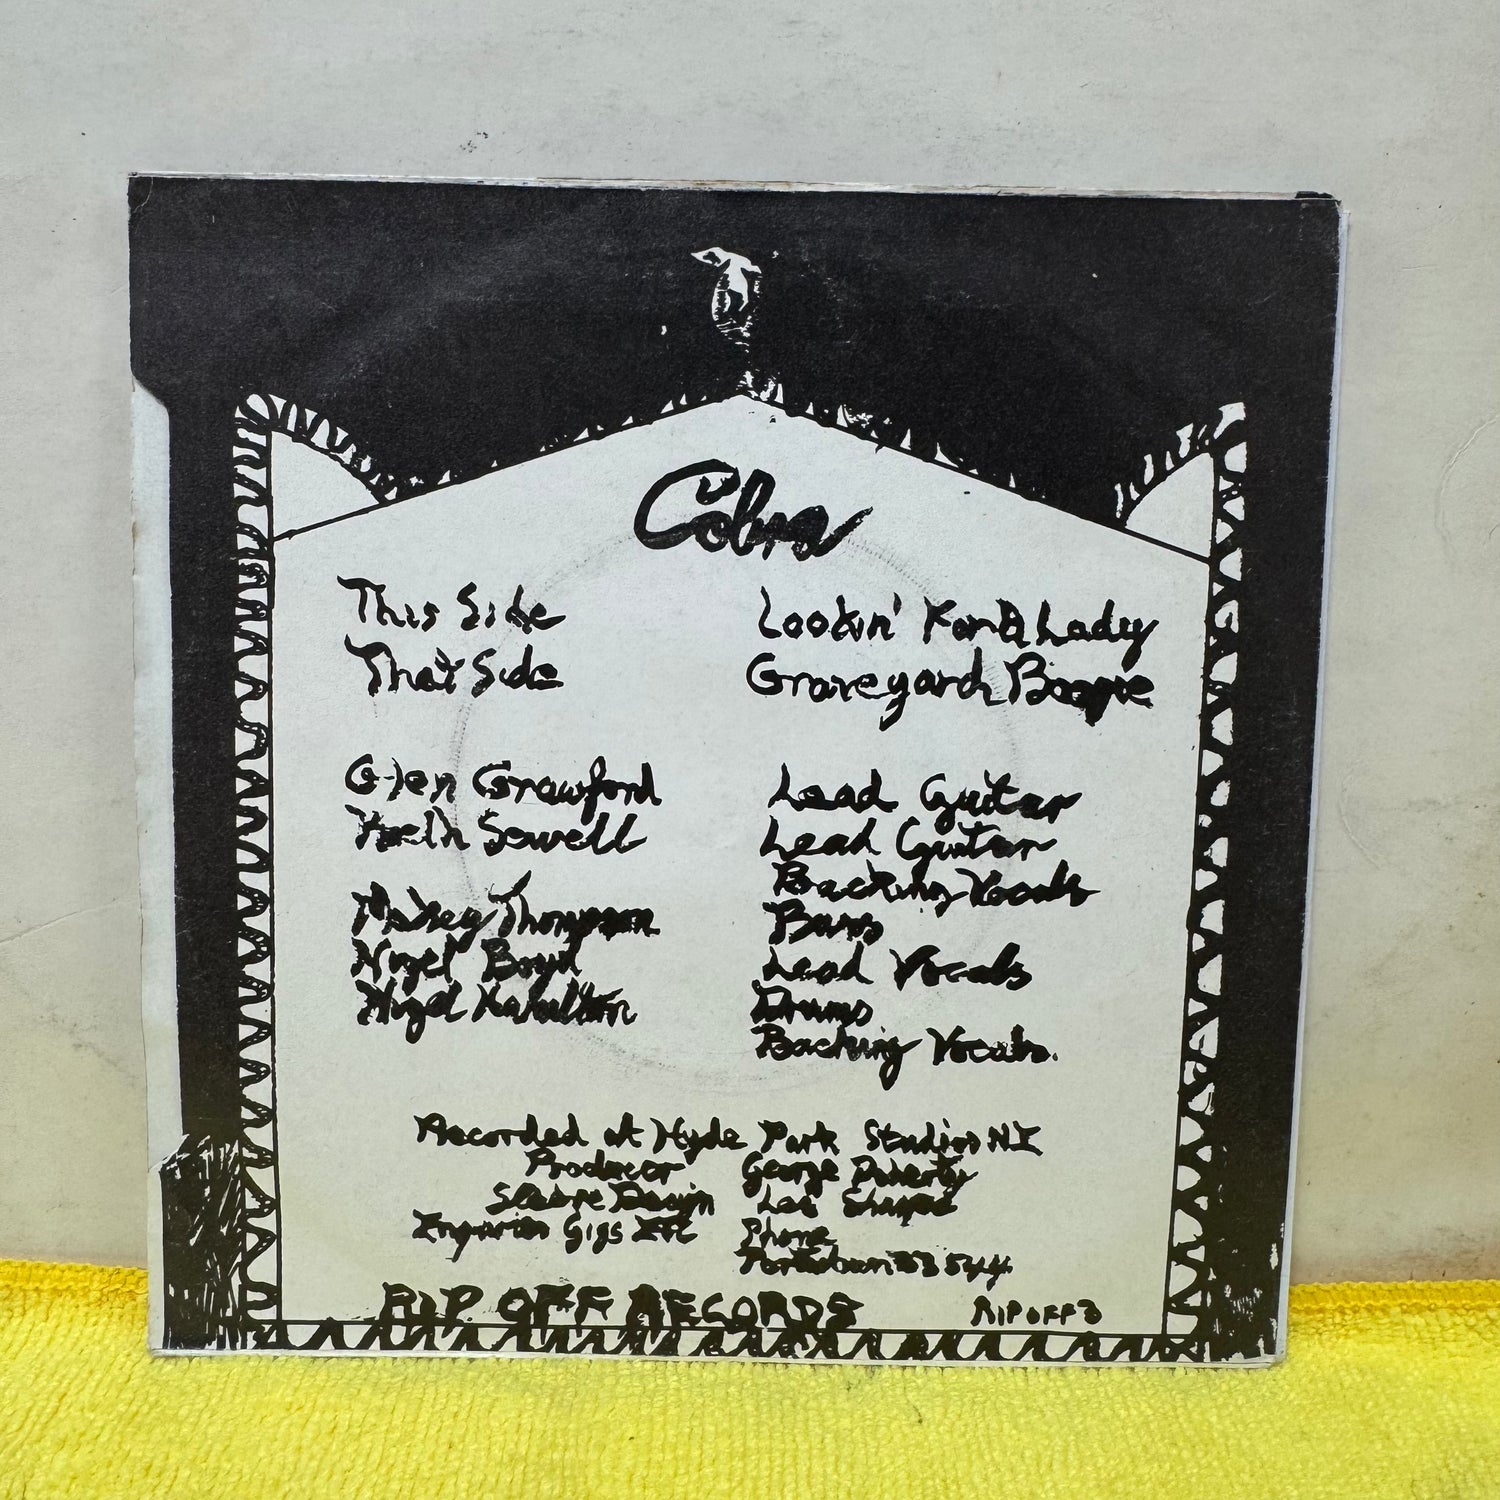 Cobra
This Side Lookin' For A Lady
That Side Graveyard Boogie
Glen Crawford Lead Guitar
Keith Sewell Lead Guitar
Backing Vocals
Mickey Thompson Bass
Nigel Boyd Lead Vocals
Nigel Hamilton Drums
Backing Vocals.
Recorded at Hyde Park Studios N.I
Producer George Doherty
Sleeve Design
Gigs Etc Phone
Portadown
RIP OFF RECORDS RIP OFF 3